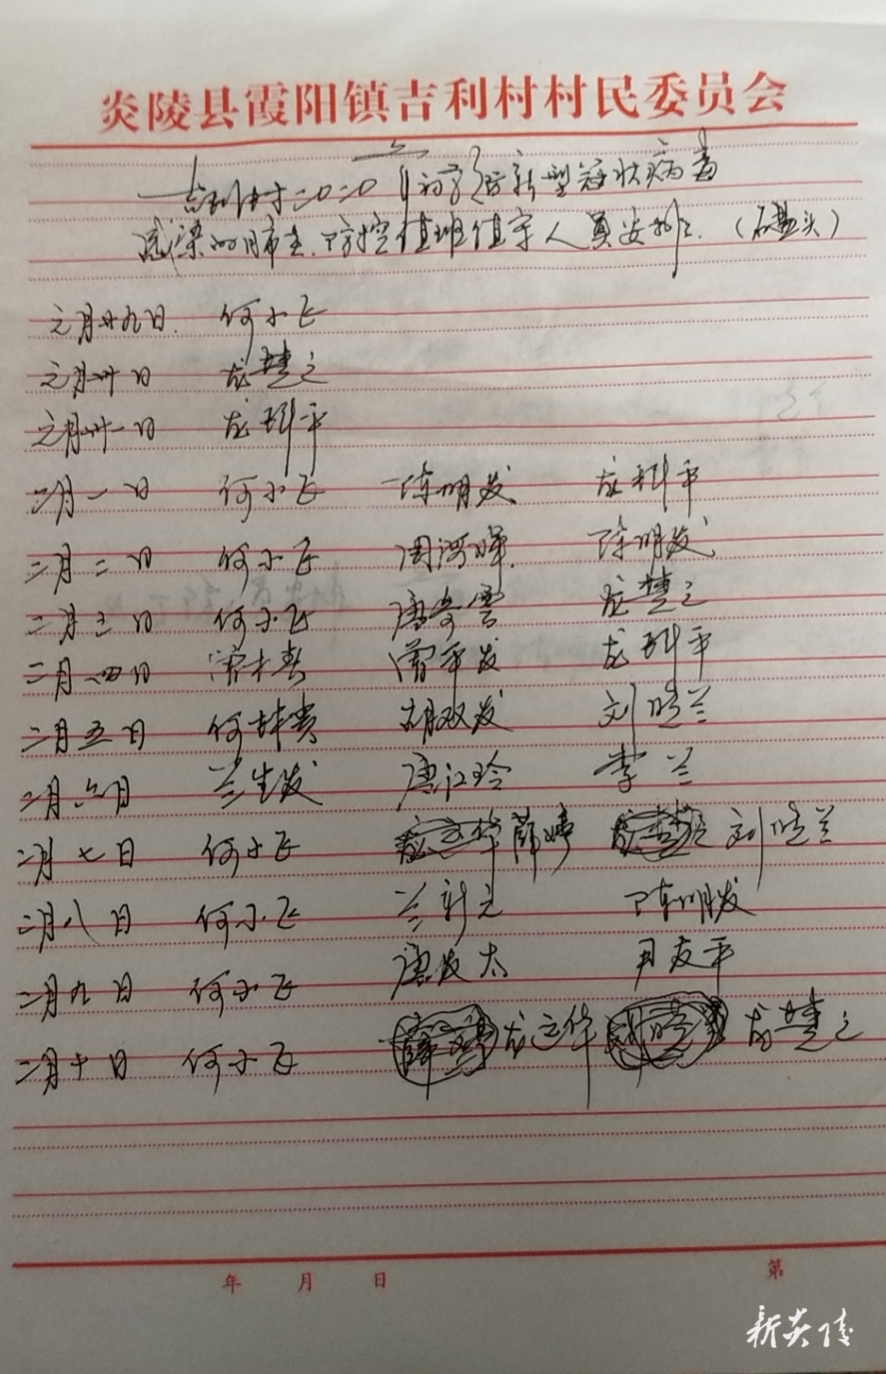 炎陵县霞阳镇吉利村村民委员会
吉利村二0二0年 新型冠状病毒
感染的肺炎.防控值班值守人员安排.（ 头）
元月廿九日. 何小飞
元月卅日 龙楚之
元月卅一日 龙科平
二月一日 何小飞 陈明发 龙科平
二月二日 何小飞 周 晖. 陈明发
二月三日 何小飞 唐奇雲 龙楚之
二月四日 曾木春 曾平发 龙科平
二月五日 何林贵 胡双发 刘晓兰
二月六日 兰生发 唐江玲 李兰
二月七日 何小飞 薛婷 刘晓兰
二月八日 何小飞 兰新元 陈明发
二月九日 何小飞 唐发太 尹友平
二月十日 何小飞 龙运华 龙楚之
年 月 日 第
新炎陵